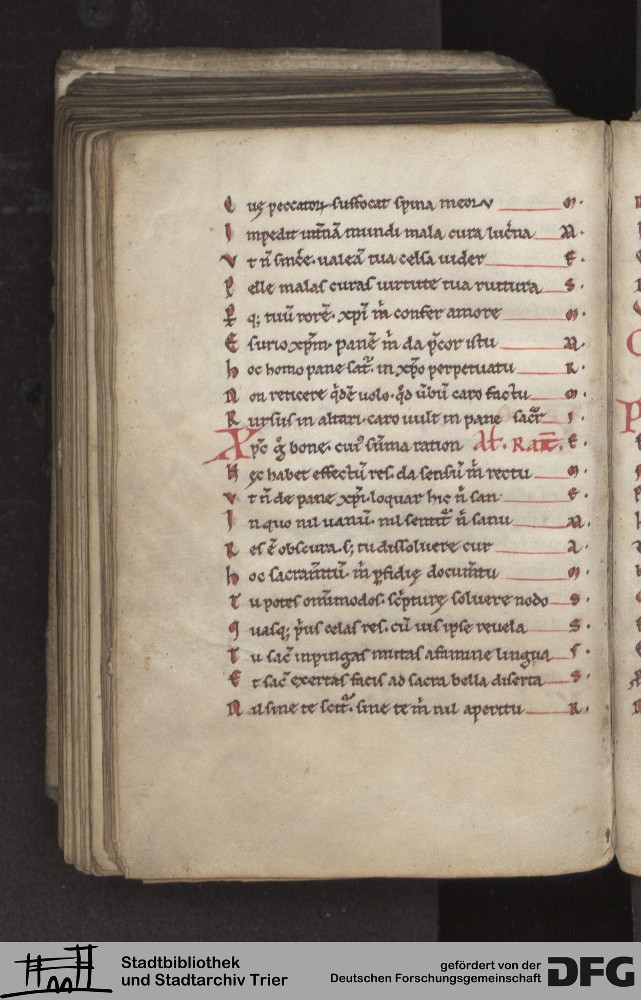 Quę peccator suffocat spina meoru M.
Impedit mundi mala cura lucna M.
Vt n̄ sincē. valeā tua celsa uider E.
Pelle malas curas uirtute tua ruitura S.
Pq; tuū rorē. xp̄i m̄ confer amore M.
Esurio xp̄m. panē m̄ da p̄cor istu M.
hoc homo pane sat. in xp̄o perpetuatu R.
Non reticere q̄dē uolo. q̄d ūbū caro factu M.
Rursus in altari. caro uult in pane sacr I.
Xp̄c bone. cui' sūma ration E.
Hęc habet effectū res. da sensū m̄ rectu M.
Vt n̄ de pane xp̄i. loquar hic n̄ san E.
In quo nil uanū. nil sentit n̄ sanu M.
Res ē obscura. s; tu dissoluere cur A.
hoc sacramtū. m̄ pfidię documtu M.
Tu potes omimodos. scripturę soluere nodo S.
Quasq; prius celas res. cū uis ipse reuela S.
Tu sac inpingas mutas afamine lingua S.
Et sac exertas facis ad sacra bella diserta S.
Nil sine te scit. sine te m̄ nil aperitu R.
Stadtbibliothek
und Stadtarchiv Trier
gefördert von der
Deutschen Forschungsgemeinschaft
DFG